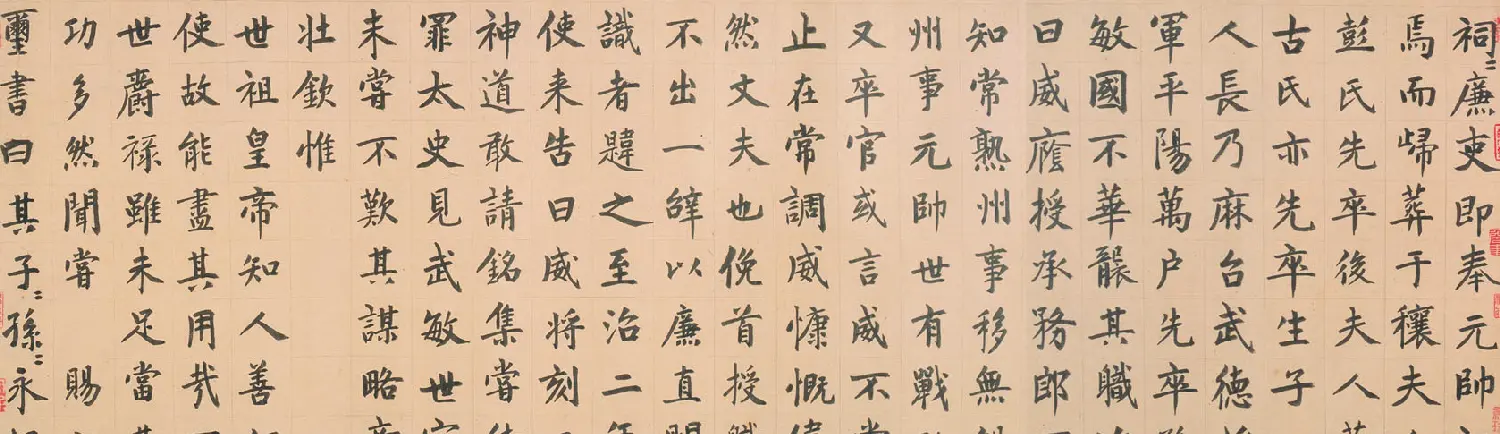 祠〻廉吏即奉元帥
焉而歸葬于穰夫
彭氏先卒後夫人
古氏亦先卒生子
人長乃麻台武德
軍平陽萬户先卒
敏國不華襲其職
曰威廕授承務郎
知常熟州事移無
州事元帥世有戰
又卒官或言威不
止在常調威慷慨
然丈夫也俛首授
不出一辟以廉直
識者韙之至治二
使来告曰威将刻
神道敢請銘集嘗
罪太史見武敏世
未嘗不歎其謀略
壮欽惟
世祖皇帝知人善
使故能盡其用㢤
世爵禄雖未足當
功多然聞嘗 賜
璽書曰其子〻孫〻永